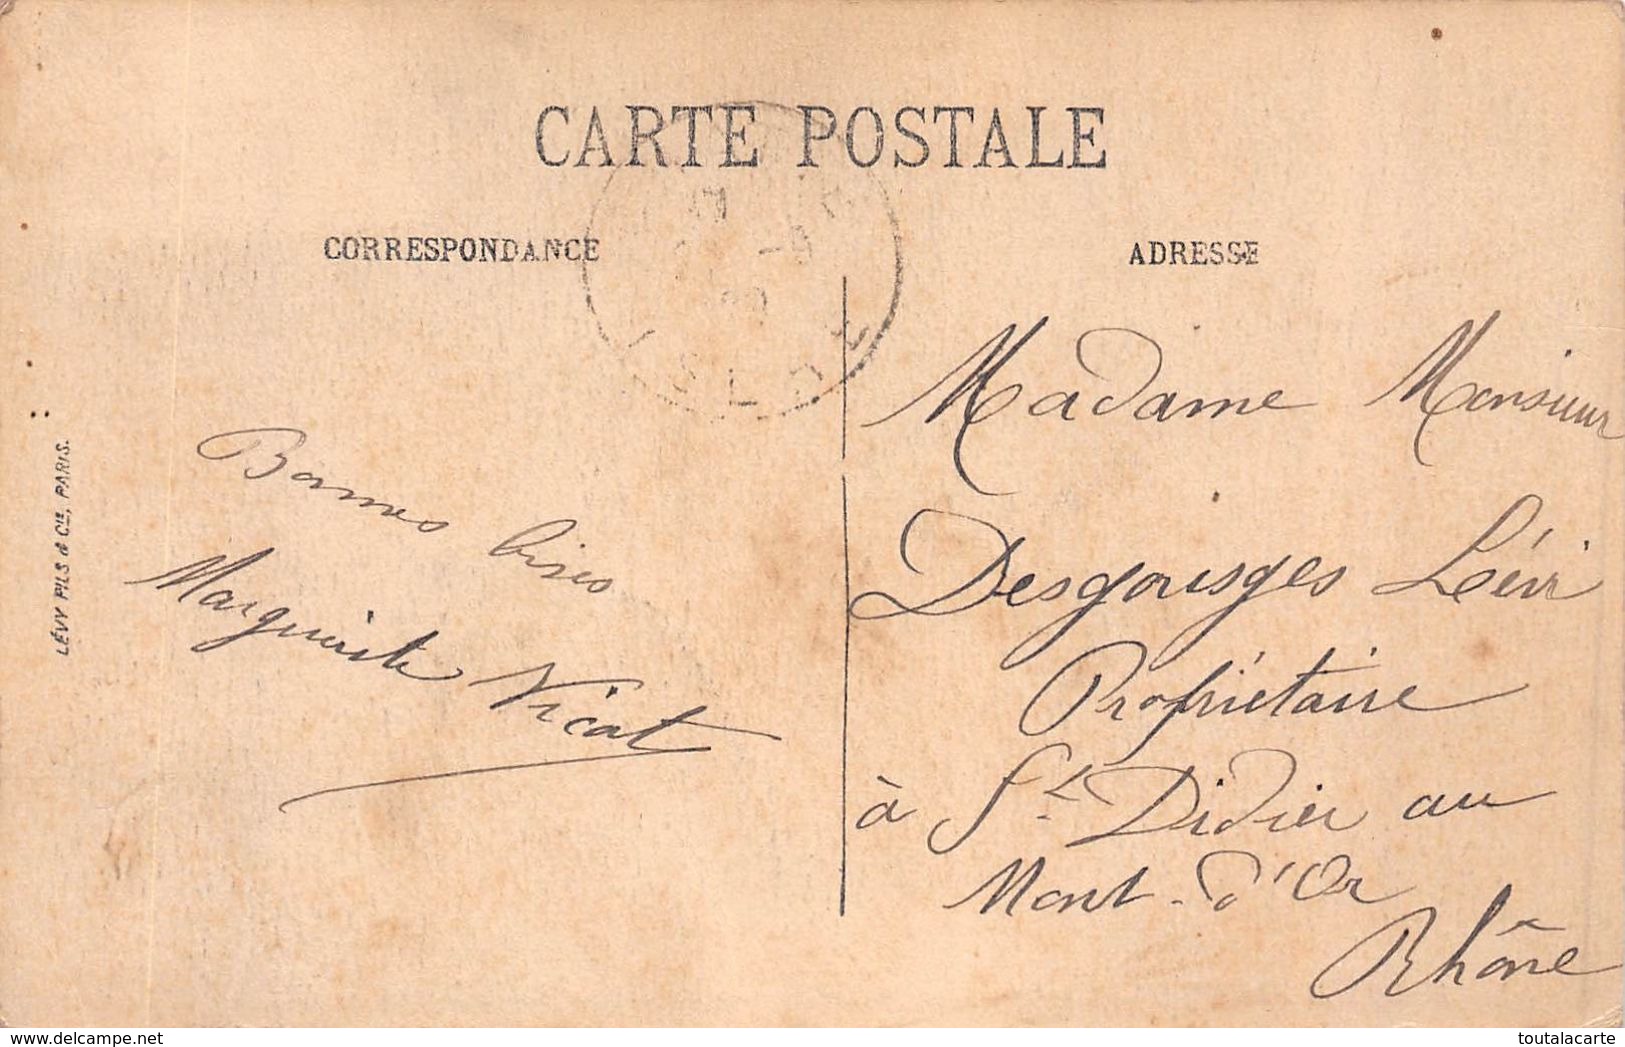 CARTE POSTALE
CORRESPONDANCE
ADRESSE
Bonnes bises
Marguerite Vicat
Madame Monsieur
Desgouges Lévi
Propriétaire
à St. Didier au
Mont-d'Or
Rhône
LÉVY FILS & Cie, PARIS.
www.delcampe.net
toutalacarte